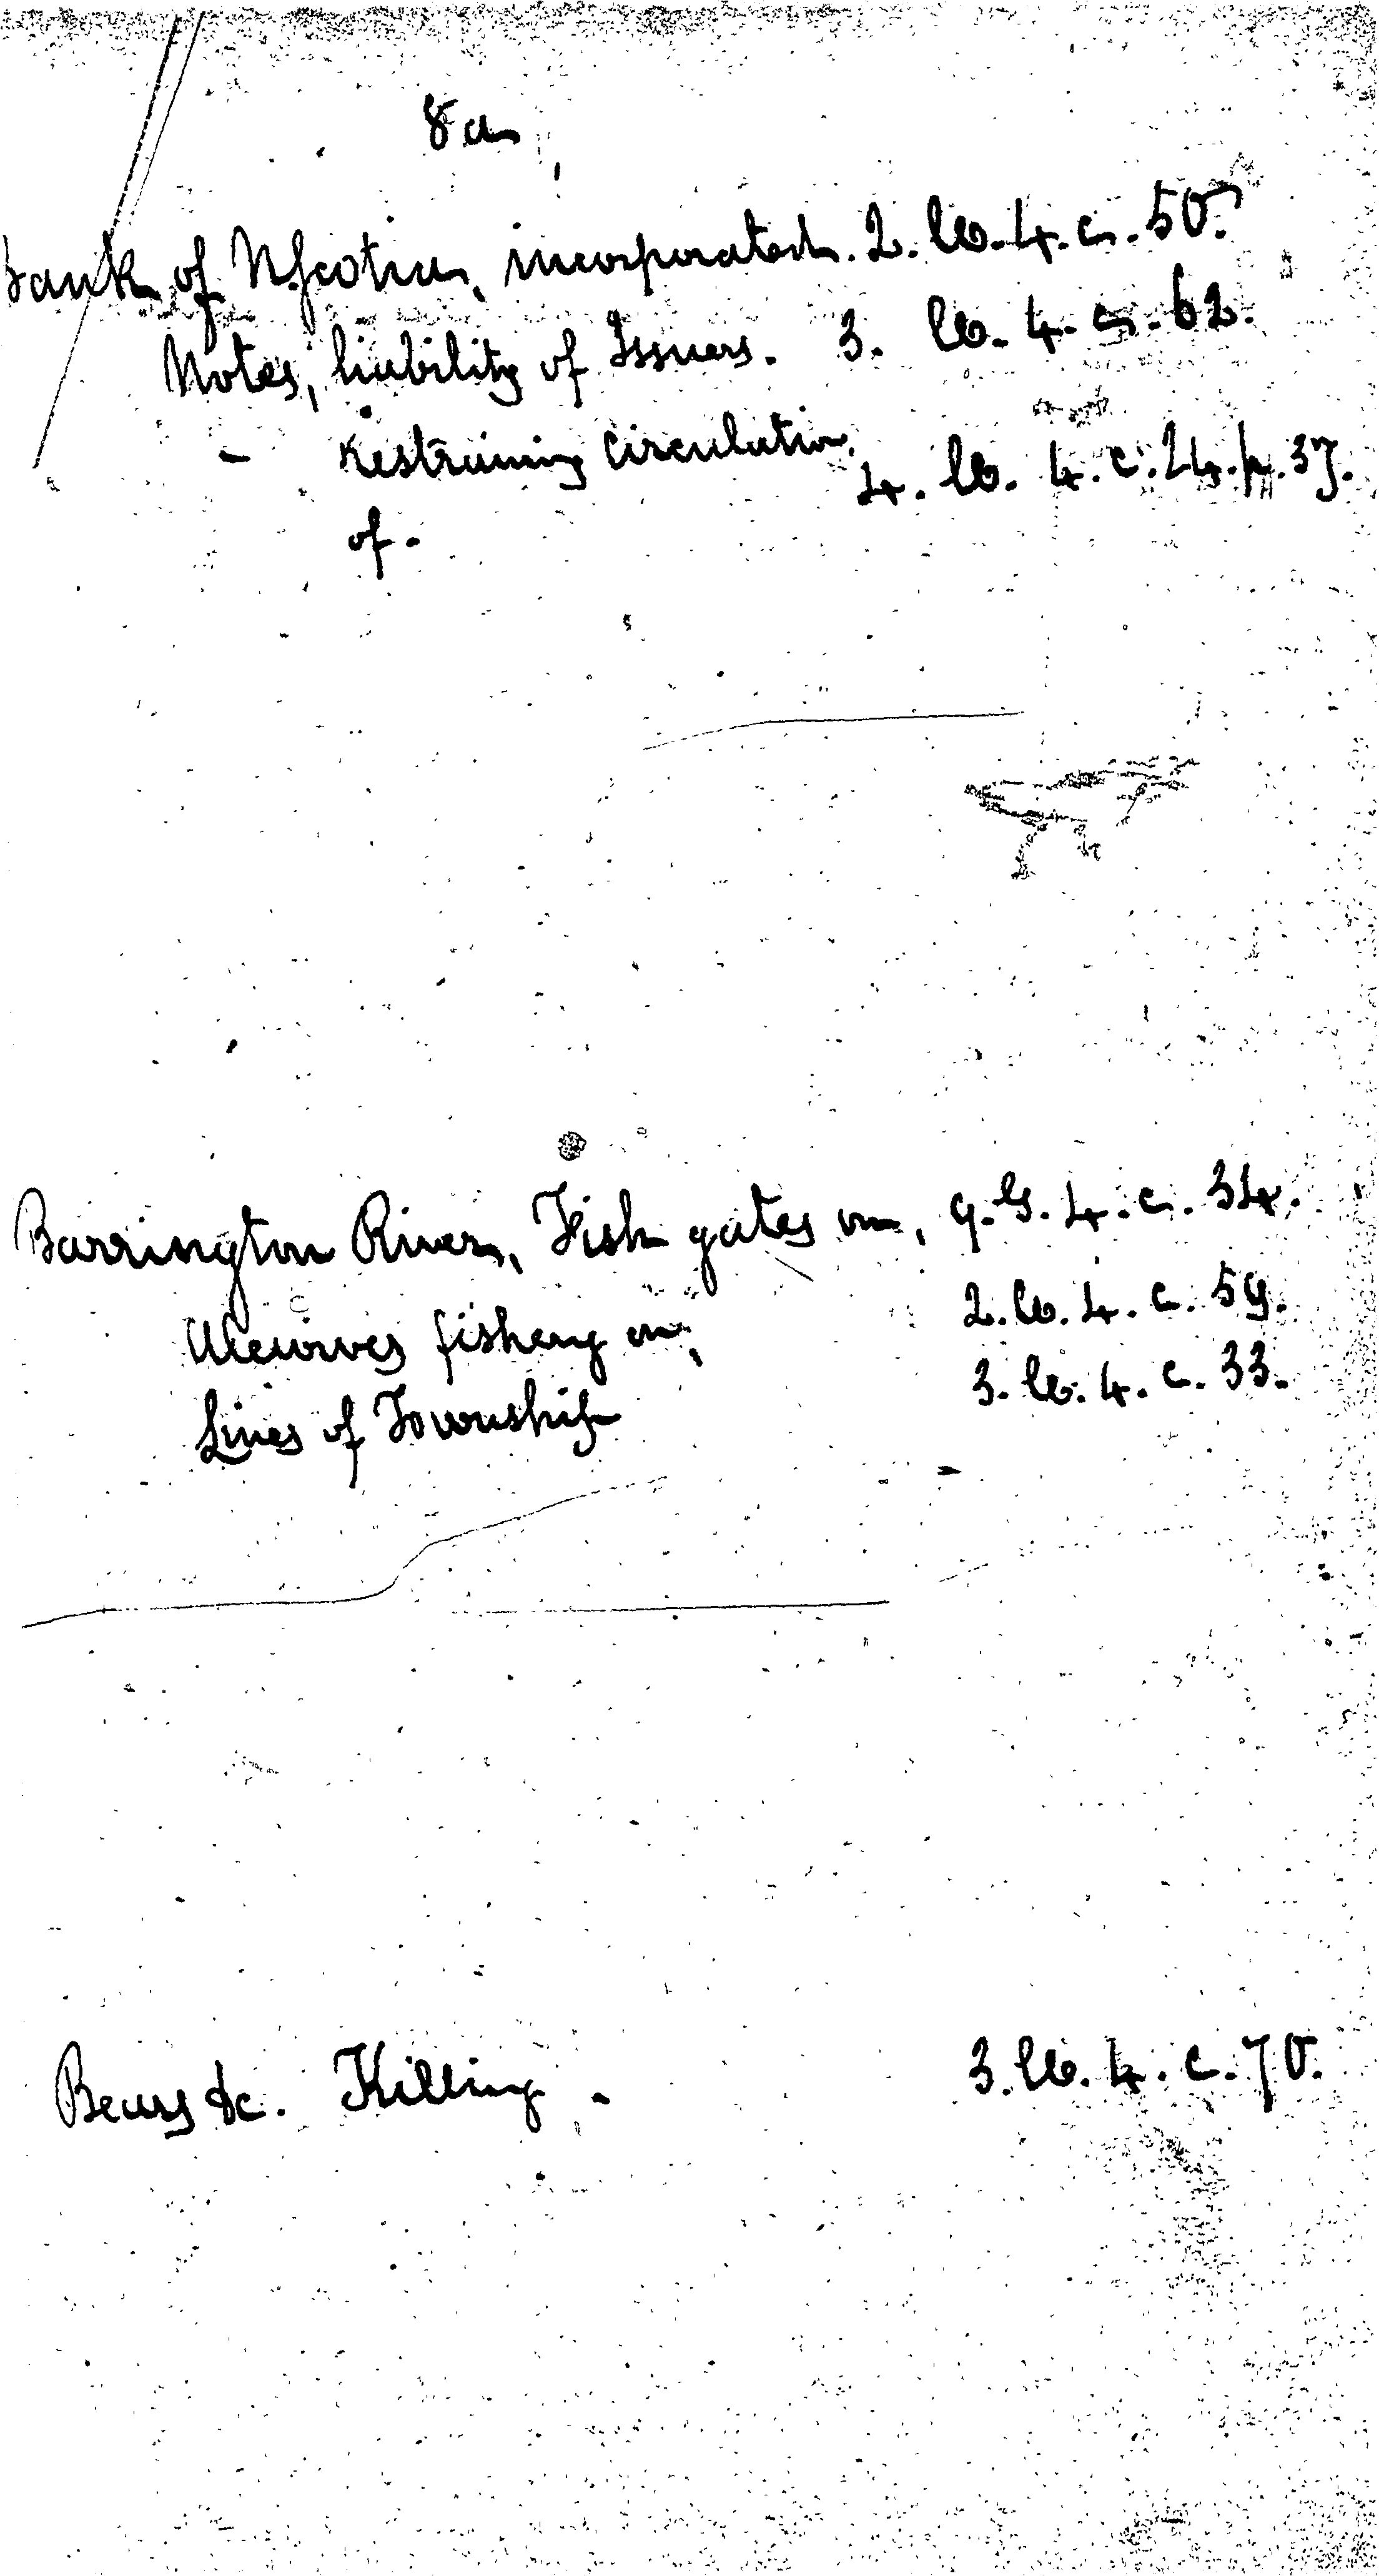 8a
Bank of NScotia, incorporated. 2. W. 4. c. 50.
Notes, liability of Issuers. 3. W. 4. c. 62.
- Restraining circulation 4. W. 4. c. 24. p. 37.
of.
Barrington River, Fish gates on, 9. G. 4. c. 34.
Alewives fishery on, 2. W. 4. c. 59.
Lines of Township 3. W. 4. c. 33.
Bears &c. Killing. 3. W. 4. c. 70.